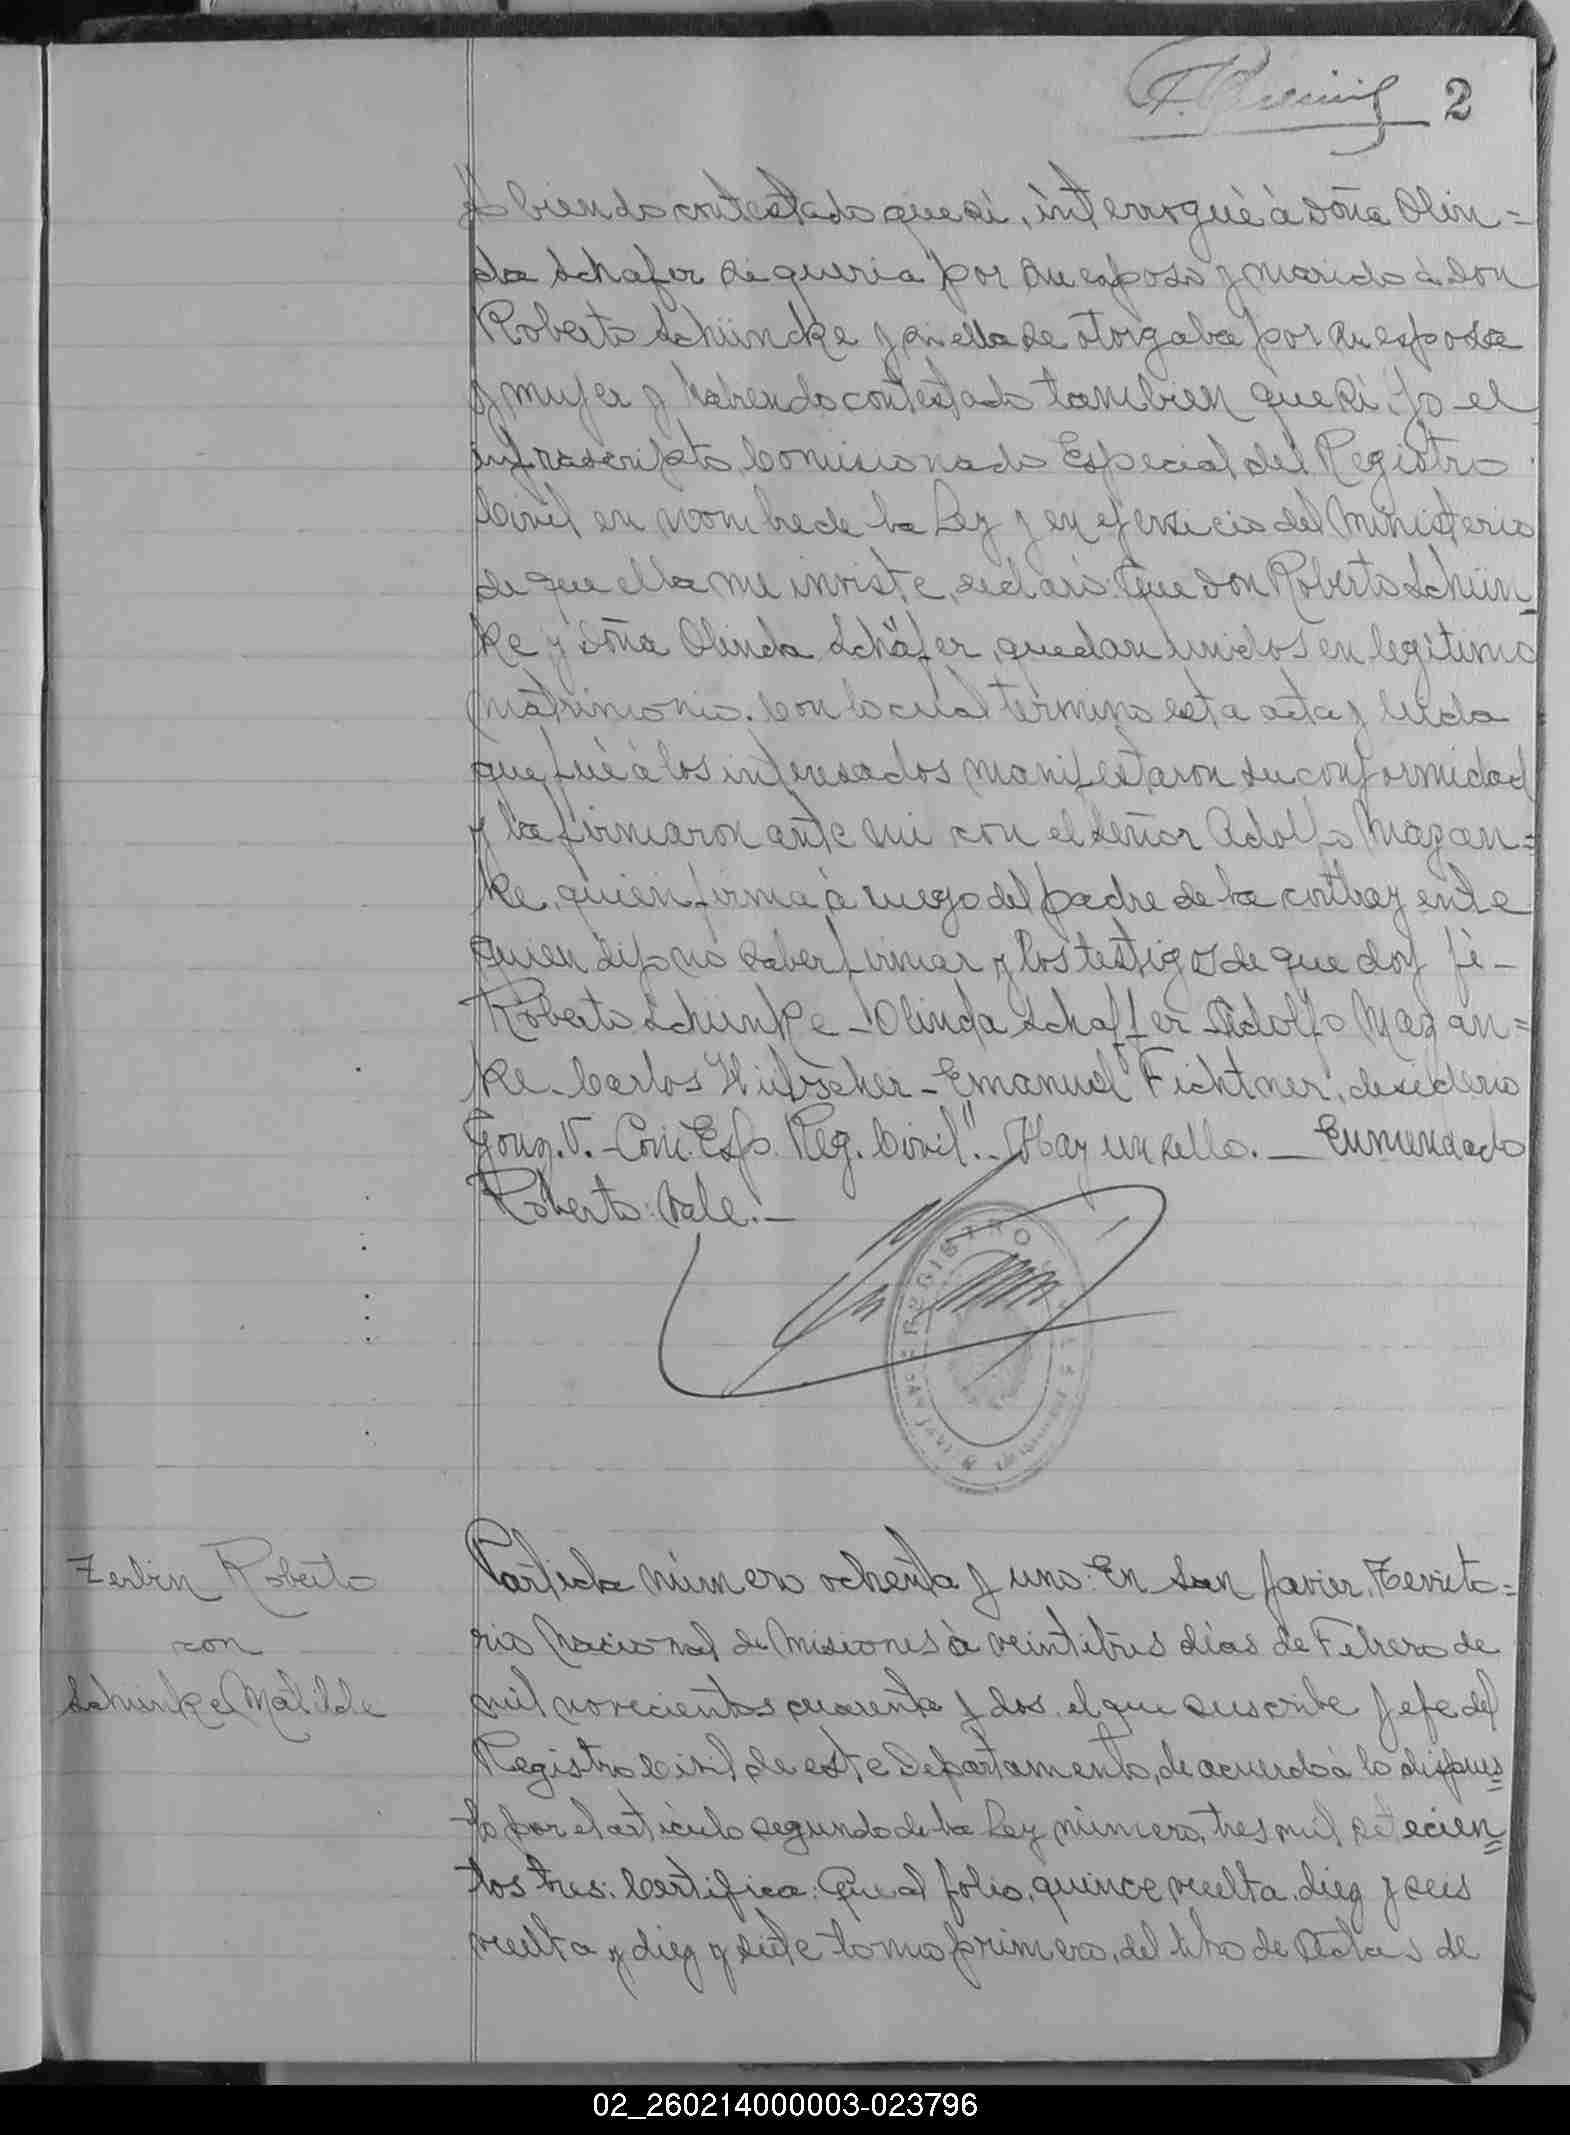 2
biendo contestado que si, interrogué à doña Olin=
da Schafer si queria por su esposo y marido à don
Roberto Schüncke y si ella se otorgaba por su esposa
y mujer y habiendo contestado tambien que si: Yo el
infrascripto, Comisionado Especial del Registro
Civil en nombre de la Ley y en ejersicio del Ministerio
de que ella me inviste, declaro: Que don Roberto Schün-
ke y doña Olinda Schäfer, quedan unidos en legitimo
matrimonio. Con lo cual termino esta acta y leida
que fué à los interesados manifestaron su conformidad
y la firmaron ante mi con el señor Adolfo Mazan=
ke, quien firma à ruego del padre de la contrayente
quien dijo no saber firmar y los testigos de que doy fé-
Roberto Schünke - Olinda Schaffer - Adolfo Mazan=
ke - Carlos Hübscher - Emanuel Fichtner, desiderio
Gonz. V. - Com. Esp. Reg. Civil". - Hay un sello. - Enmendado
Roberto: Vale. -
REGISTRO
Zerbin Roberto
con
Schünke Matilde
Partida número ochenta y uno: En San Javier, Territo=
rio Nacional de Misiones à veintitrés días de Febrero de
mil novecientos cuarenta y dos, el que suscribe Jefe del
Registro Civil de este Departamento, de acuerdo à lo dispues=
to por el artículo segundo de la Ley número, tres mil setecien=
tos tres: Certifica: Que al folio, quince vuelta, diez y seis
vuelta y diez y siete tomo primero, del libro de Actas de
02_260214000003-023796